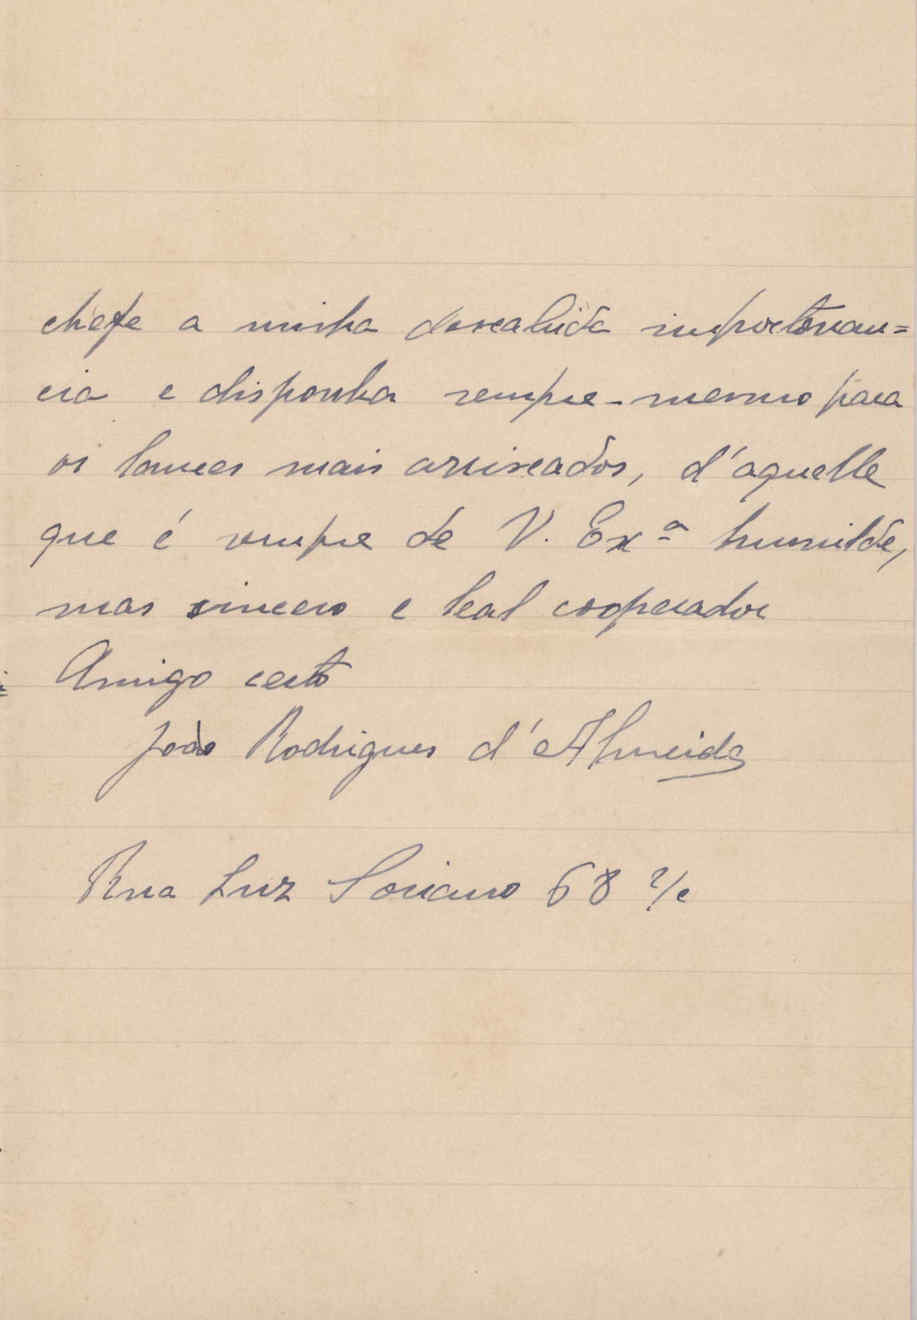 chefe a minha descabida importunan=
cia e disponha sempre - mesmo para
os lances mais arriscados, d'aquelle
que é sempre de V. Exª humilde,
mas sincero e leal cooperador
Amigo certo
João Rodrigues d'Almeida
Rua Luz Soriano 68 r/c